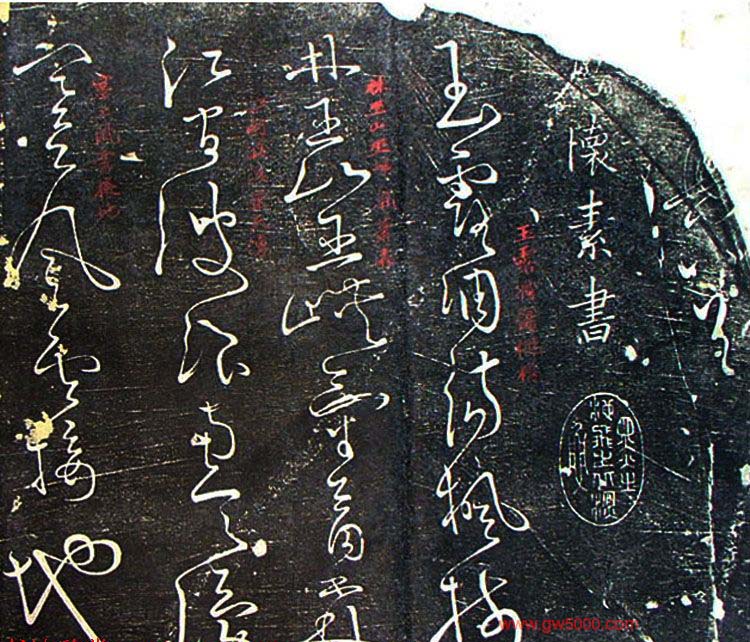 懷素書
玉露凋傷楓樹
玉露凋傷楓樹
林巫山巫峽氣蕭森
林巫山巫峽氣蕭森
江間波浪兼天湧
江間波浪兼天湧
塞上風雲接地
塞上風雲接地
www.gw5000.com